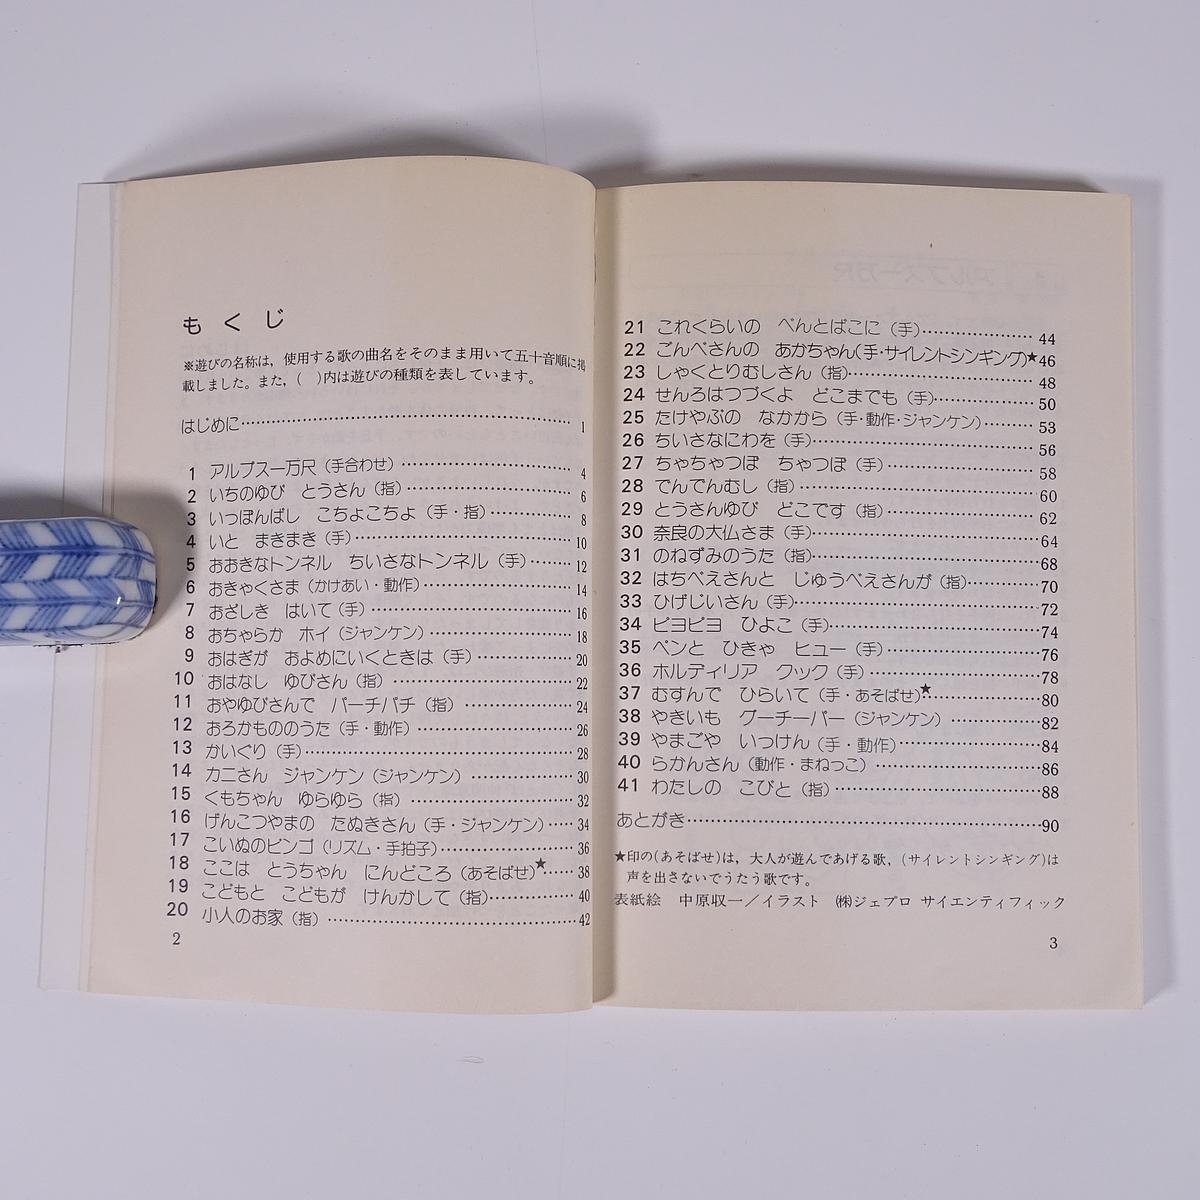 もくじ
※遊びの名称は,使用する歌の曲名をそのまま用いて五十音順に掲
載しました。また,( )内は遊びの種類を表しています。
はじめに……1
1 アルプス一万尺(手合わせ)……4
2 いちのゆび とうさん(指)……6
3 いっぽんばし こちょこちょ(手・指)……8
4 いと まきまき(手)……10
5 おおきなトンネル ちいさなトンネル(手)……12
6 おきゃくさま(かけあい・動作)……14
7 おざしき はいて(手)……16
8 おちゃらか ホイ(ジャンケン)……18
9 おはぎが およめにいくときは(手)……20
10 おはなし ゆびさん(指)……22
11 おやゆびさんで パーチパチ(指)……24
12 おろかもののうた(手・動作)……26
13 かいぐり(手)……28
14 カニさん ジャンケン(ジャンケン)……30
15 くもちゃん ゆらゆら(指)……32
16 げんこつやまの たぬきさん(手・ジャンケン)……34
17 こいぬのビンゴ(リズム・手拍子)……36
18 ここは とうちゃん にんどころ(あそばせ)★……38
19 こどもと こどもが けんかして(指)……40
20 小人のお家(指)……42
2
21 これくらいの べんとばこに(手)……44
22 ごんべさんの あかちゃん(手・サイレントシンギング)★46
23 しゃくとりむしさん(指)……48
24 せんろはつづくよ どこまでも(手)……50
25 たけやぶの なかから(手・動作・ジャンケン)……53
26 ちいさなにわを(手)……56
27 ちゃちゃつぼ ちゃつぼ(手)……58
28 でんでんむし(指)……60
29 とうさんゆび どこです(指)……62
30 奈良の大仏さま(手)……64
31 のねずみのうた(指)……68
32 はちべえさんと じゅうべえさんが(指)……70
33 ひげじいさん(手)……72
34 ピヨピヨ ひよこ(手)……74
35 ペンと ひきゃ ヒュー(手)……76
36 ホルディリア クック(手)……78
37 むすんで ひらいて(手・あそばせ)★……80
38 やきいも グーチーパー(ジャンケン)……82
39 やまごや いっけん(手・動作)……84
40 らかんさん(動作・まねっこ)……86
41 わたしの こびと(指)……88
あとがき……90
★印の(あそばせ)は,大人が遊んであげる歌,(サイレントシンギング)は
声を出さないでうたう歌です。
表紙絵 中原収一/イラスト ㈱ジェプロ サイエンティフィック
3